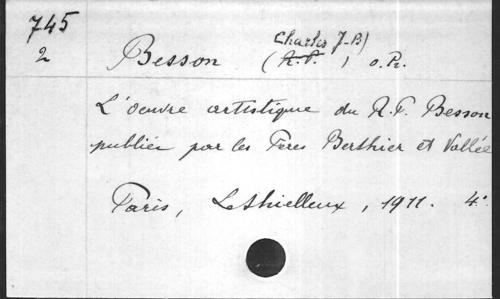 745
2
Charles J-B)
Besson (R. P. ) O. Pr.
L'oeuvre artistique du R. P. Besson
publiée par les Peres Berthier et Vallée
Paris, Lethielleux, 1911. 4°